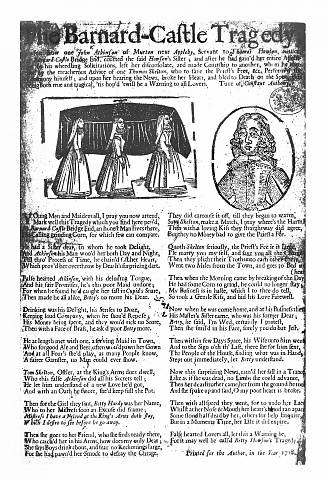 The Barnard-Castle Tragedy,
one John Atkinson of Murton near Appleby, Servant to Thomas Howson,
Barnard-Castle Bridge End, courted the said Howson's Sister, and after he had gain'd her entire
his wheedling Sollicitations, left her disconsolate, and made Courtship to another, whom he
by the treacherous Advice of one Thomas Skelton, who to save the Priest's Fees, &c. Perform'd the
himself; and upon her hearing the News, broke her Heart, and bled to Death on the Spot.
true and tragical, 'tis hop'd 'twill be a Warning to all Lovers. Tune of, Constant Anthony.
Young Men and Maidens all, I pray you now attend,
Mark well this Tragedy which you find here penn'd,
Barnard Castle Bridge End, an honest Man lives there,
Calling grinding Corn, for which few can compare.
He had a Sister dear, in whom he took Delight,
And Atkinson his Man woo'd her both Day and Night,
Till thro' Process of Time, he chain'd her Heart,
Which prov'd her overthrow by Death's surprizing dart.
False hearted Atkinson, with his deluding Tongue,
And his fair Promises, he's this poor Maid undone;
For when he found he'd caught her fast in Cupid's Snare,
Then made he all alike, Betty's no more his Dear.
Drinking was his Delight, his Senses to Doze,
Keeping loud Company, when he shou'd Repose;
His Money being spent, and they wou'd tick no more,
Then with a Face of Brass, he ask'd poor Betty more.
He at length met with one, a serving Maid in Town,
Who for good Ale and Beer, often wou'd pawn her Gown
And at all Fours she'd play, as many People know,
A fairer Gamster, no Man could ever show.
Tom Skelton, Ostler, at the King's Arms does dwell,
Who this false Atkinson did all his Secrets tell;
He let him understand of a new Love he'd got,
And with an Oath he swore, she'd keep full the Pot.
Then for the Girl they sent, Betty Hardy was her Name,
Who to her Mistress soon an Excuse did frame;
Mistress I have a Friend at the King's Arms doth stay,
Which I desire to see before he go away.
Then she goes to her Friend, who she finds ready there,
Who catch'd her in his Arms, how does my only Dear;
She says Boys drink about, and fear no Reckonings large,
For she had pawn'd her Smock to defray the Charge.
They did carouse it off, till they began to warm,
Says Skelton, make a Match, I pray where's the Harm?
Then with a loving Kiss they straightway did agree,
But they no Money had to give the Priest a Fee.
Quoth Skelton seriously, the Priest's Fee is at large,
I'll marry you myself, and save you all the Charge;
Then they plighted their Troth unto each other there,
Went two Miles from the Town, and goes to Bed
Then when the Morning came by breaking of the Day,
He had some Corn to grind, he could no longer stay;
My Business is in haste, which I to thee do tell,
So took a Gentle Kiss, and bid his Love Farewell.
Now when he was come home, and at his Business there,
His Master's Sister came, who was his former Dear;
Betty, he said, I'm Wed, certain I protest,
Then she smil'd in his Face, surely you do but Jest.
Then within few Days Space, his Wife unto him went,
And to the Sign o'th' Last, there she for him sent,
The People of the House, finding what was in Hand,
Stept out immediately, let Betty understand.
Now this surprizing News, caus'd her fall in a Trance,
Like as if she was dead, no Limbs she could advance,
Then her dear Brother came, her from the ground he took
And she spake up and said, O my poor heart is broke.
Then with all speed they went, for to undo her Lace,
Whilst at her Nose & Mouth her heart's blood ran apace
Some stood half dead by her, others for help Enquire
But in a Moment's Time, her Life it did expire.
False hearted Lovers all, let this a Warning be,
For it may well be call'd Betty Howson's Tragedy.
Printed for the Author, in the Year 1718.